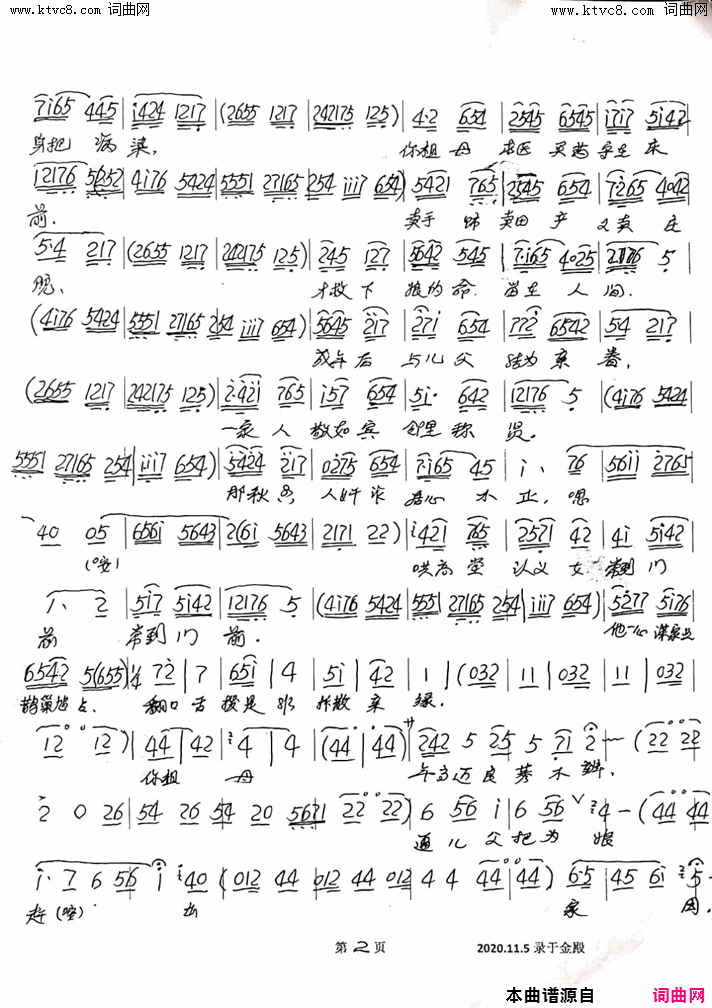 www.ktvc8.com 词曲网 www.ktvc8.com 词曲网
7i65 445 | i424 1217 | (2655 1217 | 242175 125) | 4·2 654 | 2545 6545 | i7i7 5i42
身把 病 染, 你祖 母 求医 买药 守在 床
12176 5(652 | 4i76 5424 | 5551 27165 | 254 iii7 654) | 5421 765 | 2545 654 | 7265 4042
前. 卖手 饰 卖田 产 又卖 庄
5·4 217 | (2655 1217 | 242175 125) | 245 127 | 5642 545 | 7·i65 4025 | 217176 5
院, 才救 下 娘的 命 留在 人 间.
(4i76 5424 | 5551 27165 254 | iii7 654) | 5645 217 | 27i 654 | 772 6542 | 5·4 217 |
成年 后 与儿 父 结为 亲 眷,
(2655 1217 | 242175 125) | 2·421 765 | i57 654 | 5i· 642 | 12176 5 | (4i76 5424
一家 人 敬如 宾 邻里 称 贤.
5551 27165 254 | iii7 654) | 5424 217 | 0275 654 | 7i65 45 | i、 76 | 56ii 2765
那秋 人奸诈 居心 不 正, 嗯
40 05 | 656i 5643 | 2(6i 5643 | 2171 22) | 421 765 | 2571 42 | 4i 5i42
哄高 堂 认义 女 常到 门
i、 2 | 5i7 5i42 | 12176 5 | (4i76 5424 | 5551 27165 254 | iii7 654) | 5277 5i76
前 常到 门 前. 他一心
6542 5(655) | 72 | 7 | 65i | 4 | 5i | 42 | 1 | (032 | 11 | 032 | 11 | 032
翻口 舌 搬是 非 拆散 亲 缘.
12 12) | 44 | 42 | 4 | 4 | (44 | 44) | 242 5 255 5 71 2 — (22 22
你祖 母 年高迈 良莠 不 辨,
2 0 26 | 54 26 54 20 5671 22 22) | 6 56 i | 6 56 4 — (44 44
逼儿 父 把为 娘
i·7 6 56 i 40 (012 44 012 44 012 4 4 44 44) | 6·5 | 45 6i 5·
赶 出 家 园.
第2页
2020.11.5 录于金殿
本曲谱源自 词曲网
www.ktvc8.com